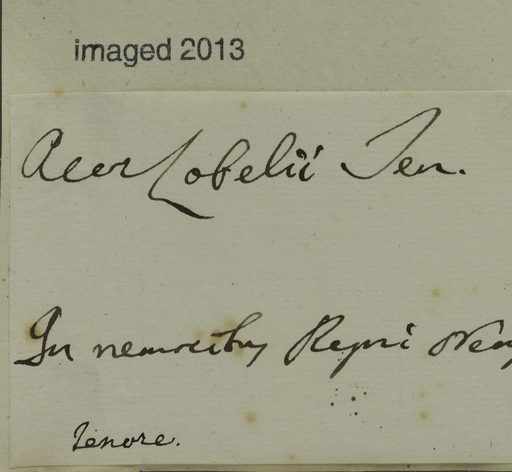 imaged 2013
Acer Lobelii Ten.
In nemoribus Regni Nea
Tenore.